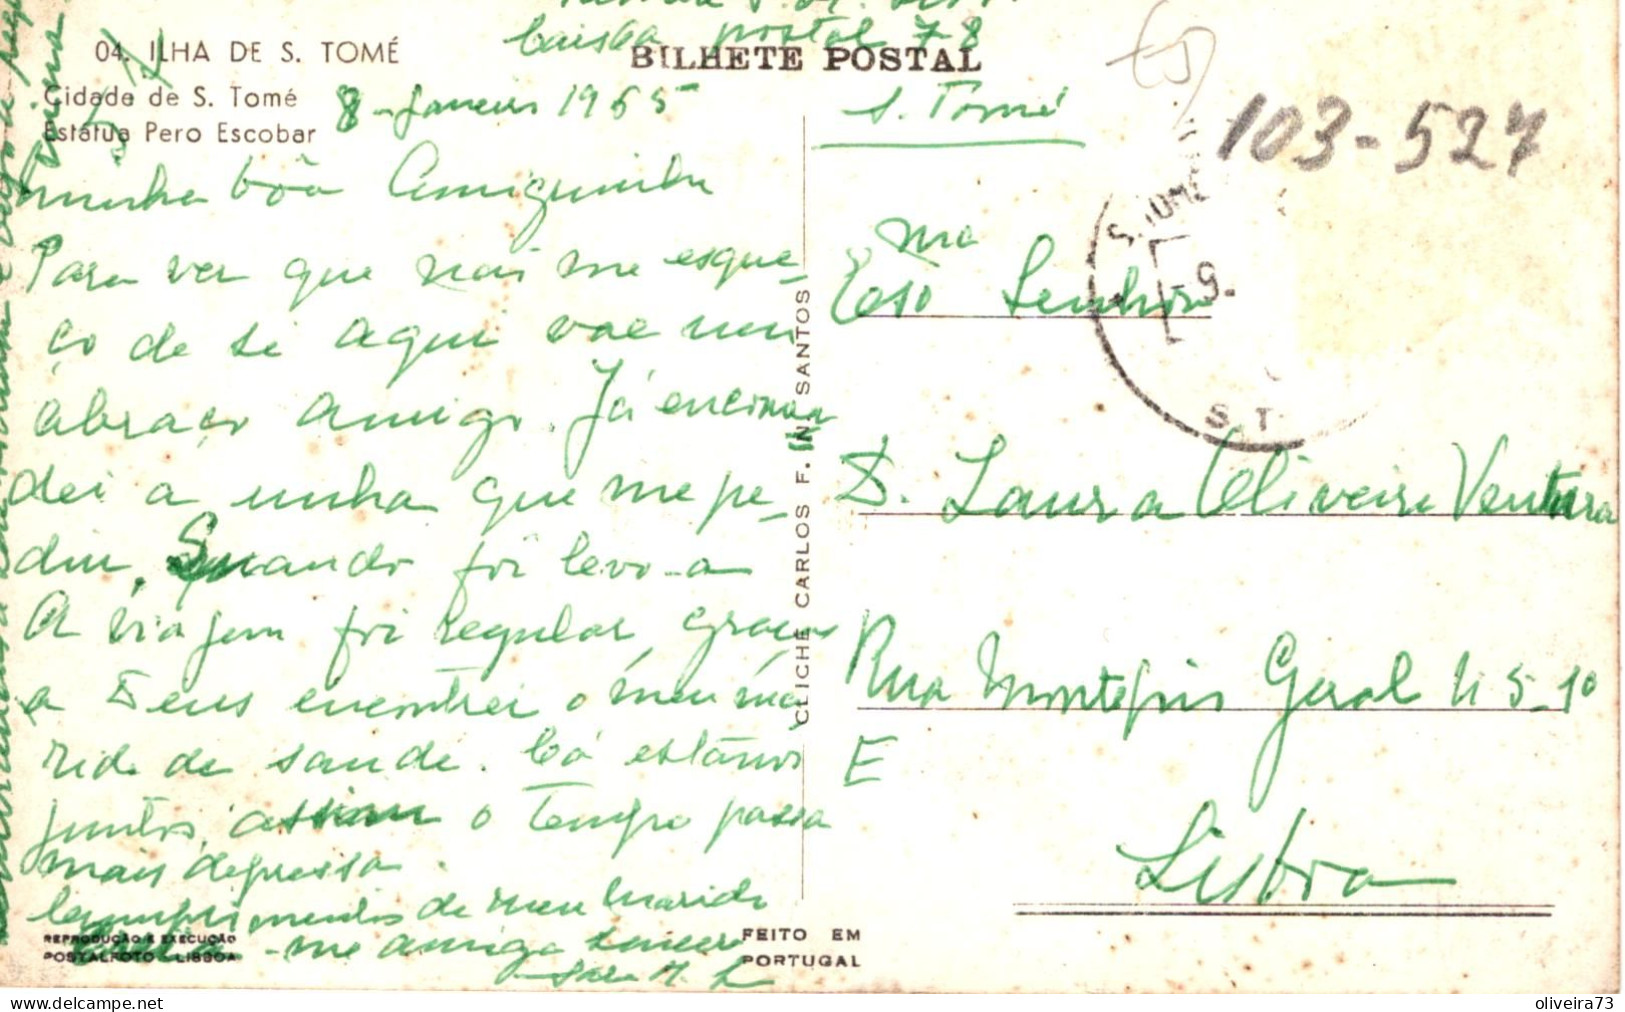 Caixa postal 78
04. ILHA DE S. TOMÉ
BILHETE POSTAL
Cidade de S. Tomé
Estátua Pero Escobar
8-Janeiro 1965
S. Tomé
103-527
minha bôa Amiguinha
Para ver que não me esque-
ço de si aqui vae um
abraço amigo. Já encomen
dei a unha que me pe-
diu. Quando fôr levo-a
A viagem foi regular, graças
a Deus encontrei o meu ma
rido de saude. Cá estamos
juntos, assim o tempo passa
mais depressa.
Cumprimentos de meu marido
-me amiga sincera
S. TOMÉ
-9-
S. T.
Exma
Senhora
D. Laura Oliveira Ventura
Rua Montepio Geral 4 5-1º
E
Lisboa
CLICHÉ CARLOS F. N. SANTOS
REPRODUÇÃO E EXECUÇÃO
POSTALFOTO - LISBOA
FEITO EM
PORTUGAL
oliveira73